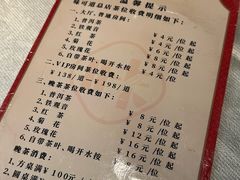 温馨提示
味可道总店茶位收费明细如下：
一、大厅、普通房间：
1、普洱茶 ￥4元/位起
2、铁观音 ￥4元/位起
3、红茶 ￥4元/位起
4、菊花 ￥6元/位起
5、玫瑰花 ￥8元/位起
6、自带茶叶、喝开水按
二、VIP房间茶位收费如下：
￥138/道—￥198/道
三、晚茶茶位收费如下：
1、普洱茶 ￥8元/位起
2、铁观音 ￥8元/位起
3、红茶 ￥8元/位起
4、菊花 ￥12元/位起
5、玫瑰花 ￥16元/位起
6、自带茶叶、喝开水按
晚茶消费：
1、方桌满￥100元
2、圆桌满￥